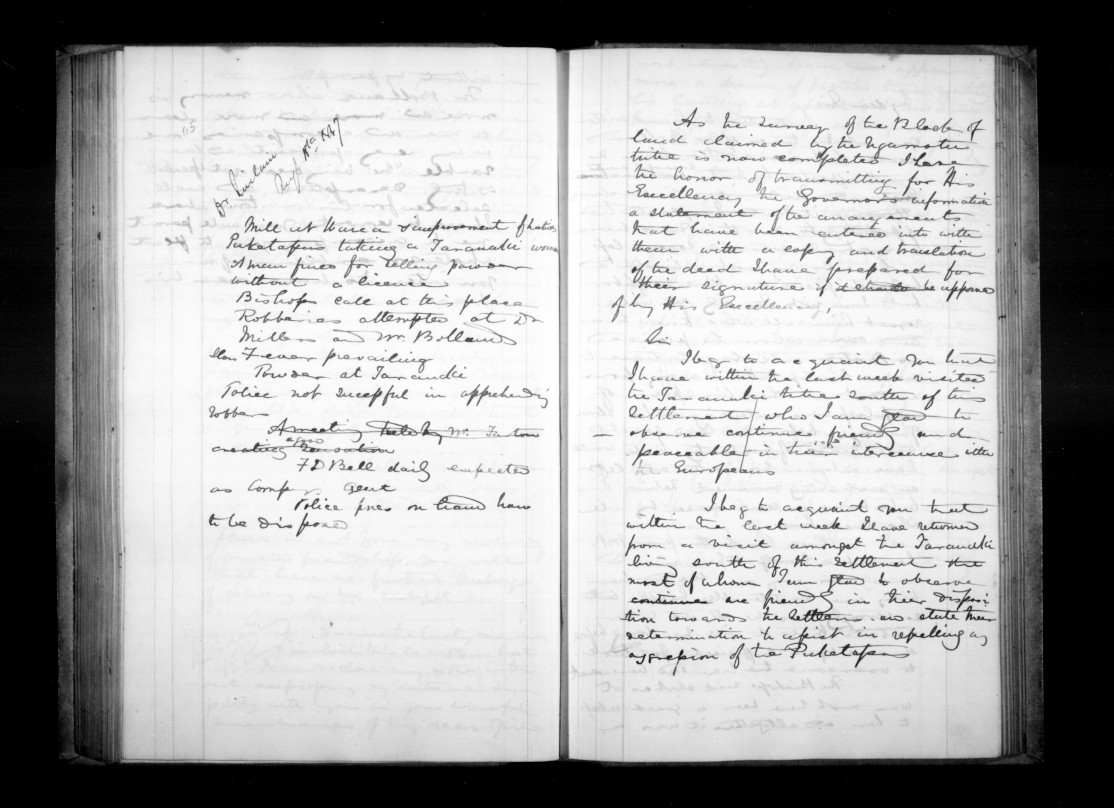 Dr. Sinclair
Augt 11th 1847
Mill at Warea & improvement of natives
Puketapu taking a Taranaki woman
A man fined for selling powder
without a license
Bishops call at this place
Robberies attempted at Dr
Millers and Mr. Bolland
Fever prevailing
Powder at Taranaki
Police not successful in apprehending
robber
A meeting held by Mr.
creating a good sensation
F D Bell daily expected
as Comp Agent
Police fines on hand how
to be disposed
As the Survey of the Block of
land claimed by the Ngamotu
tribe is now completed I have
the honor of transmitting for His
Excellency the Governor's information
a statement of the arrangements
that have been entered into with
them with a copy and translation
of the deed I have prepared for
their signature if it should be approved
of by His Excellency,
Sir
I beg to acquaint you that
I have within the last week visited
the Taranaki tribe south of this
Settlement who I am glad to
observe continue friendly and
peaceable in their intercourse with
the Europeans
I beg to acquaint you that
within the last week I have returned
from a visit amongst the Taranaki
living south of this Settlement the
most of whom I am glad to observe
continue are friendly in their disposi-
tion towards the Settlers and state their
determination to assist in repelling any
aggression of the Puketapu